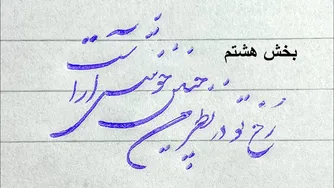 بخش هشتم
رخ تو در نظر من چنین خوشش آراست